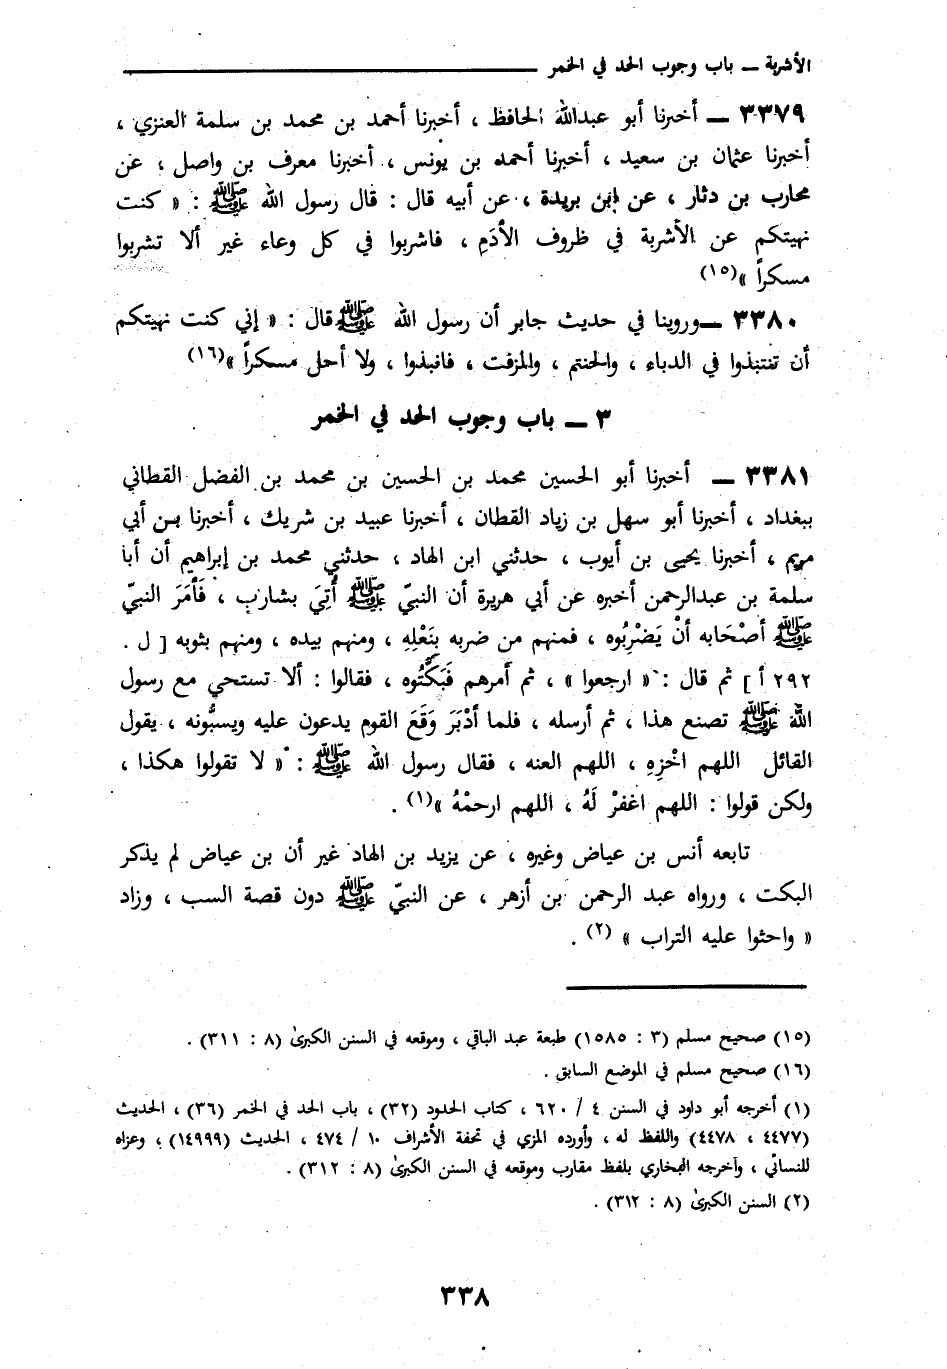 الأشربة ــ باب وجوب الحد في الخمر
٣٣٧٩ ــ أخبرنا أبو عبدالله الحافظ ، أخبرنا أحمد بن محمد بن سلمة العنزي ،
أخبرنا عثمان بن سعيد ، أخبرنا أحمد بن يونس ، أخبرنا معرف بن واصل ، عن
محارب بن دثار ، عن إبن بريدة ، عن أبيه قال : قال رسول الله ﷺ : « كنت
نهيتكم عن الأشربة في ظروف الأدَمِ ، فاشربوا في كل وعاء غير ألا تشربوا
مسكراً »(١٥)
٣٣٨٠ ــ وروينا في حديث جابر أن رسول الله ﷺ قال : « إني كنت نهيتكم
أن تنتبذوا في الدباء ، والحنتم ، والمزفت ، فانبذوا ، ولا أحلى مسكراً »(١٦)
٣ ــ باب وجوب الحد في الخمر
٣٣٨١ ــ أخبرنا أبو الحسين محمد بن الحسين بن محمد بن الفضل القطاني
ببغداد ، أخبرنا أبو سهل بن زياد القطان ، أخبرنا عبيد بن شريك ، أخبرنا بن أبي
مريم ، أخبرنا يحيى بن أيوب ، حدثني ابن الهاد ، حدثني محمد بن إبراهيم أن أبا
سلمة بن عبدالرحمن أخبره عن أبي هريرة أن النبيّ ﷺ أُتِيَ بشارب ، فَأمَرَ النبيّ
ﷺ أصْحَابه أنْ يَضْرِبُوه ، فمنهم من ضربه بِنَعْلِهِ ، ومنهم بيده ، ومنهم بثوبه [ ل .
٢٩٢ أ ] ثم قال : « ارجعوا » ، ثم أمرهم فَبَكَّتُوه ، فقالوا : ألا تستحي مع رسول
الله ﷺ تصنع هذا ، ثم أرسله ، فلما أدْبَرَ وَقَعَ القوم يدعون عليه ويسبُّونه ، يقول
القائل اللهم اخْزِهِ ، اللهم العنه ، فقال رسول الله ﷺ : « لا تقولوا هكذا ،
ولكن قولوا : اللهم اغفرْ لَهُ ، اللهم ارحمْهُ »(١) .
تابعه أنس بن عياض وغيره ، عن يزيد بن الهاد غير أن بن عياض لم يذكر
البكت ، ورواه عبد الرحمن بن أزهر ، عن النبيّ ﷺ دون قصة السب ، وزاد
« واحثوا عليه التراب » (٢) .
(١٥) صحيح مسلم (٣ : ١٥٨٥) طبعة عبد الباقي ، وموقعه في السنن الكبرىٰ (٨ : ٣١١) .
(١٦) صحيح مسلم في الموضع السابق .
(١) أخرجه أبو داود في السنن ٤ / ٦٢٠ ، كتاب الحدود (٣٢) ، باب الحد في الخمر (٣٦) ، الحديث
(٤٤٧٧ ، ٤٤٧٨) واللفظ له ، وأورده المزي في تحفة الأشراف ١٠ / ٤٧٤ ، الحديث (١٤٩٩٩) ، وعزاه
للنسائي ، وأخرجه البخاري بلفظ مقارب وموقعه في السنن الكبرىٰ (٨ : ٣١٢) .
(٢) السنن الكبرىٰ (٨ : ٣١٢) .
٣٣٨